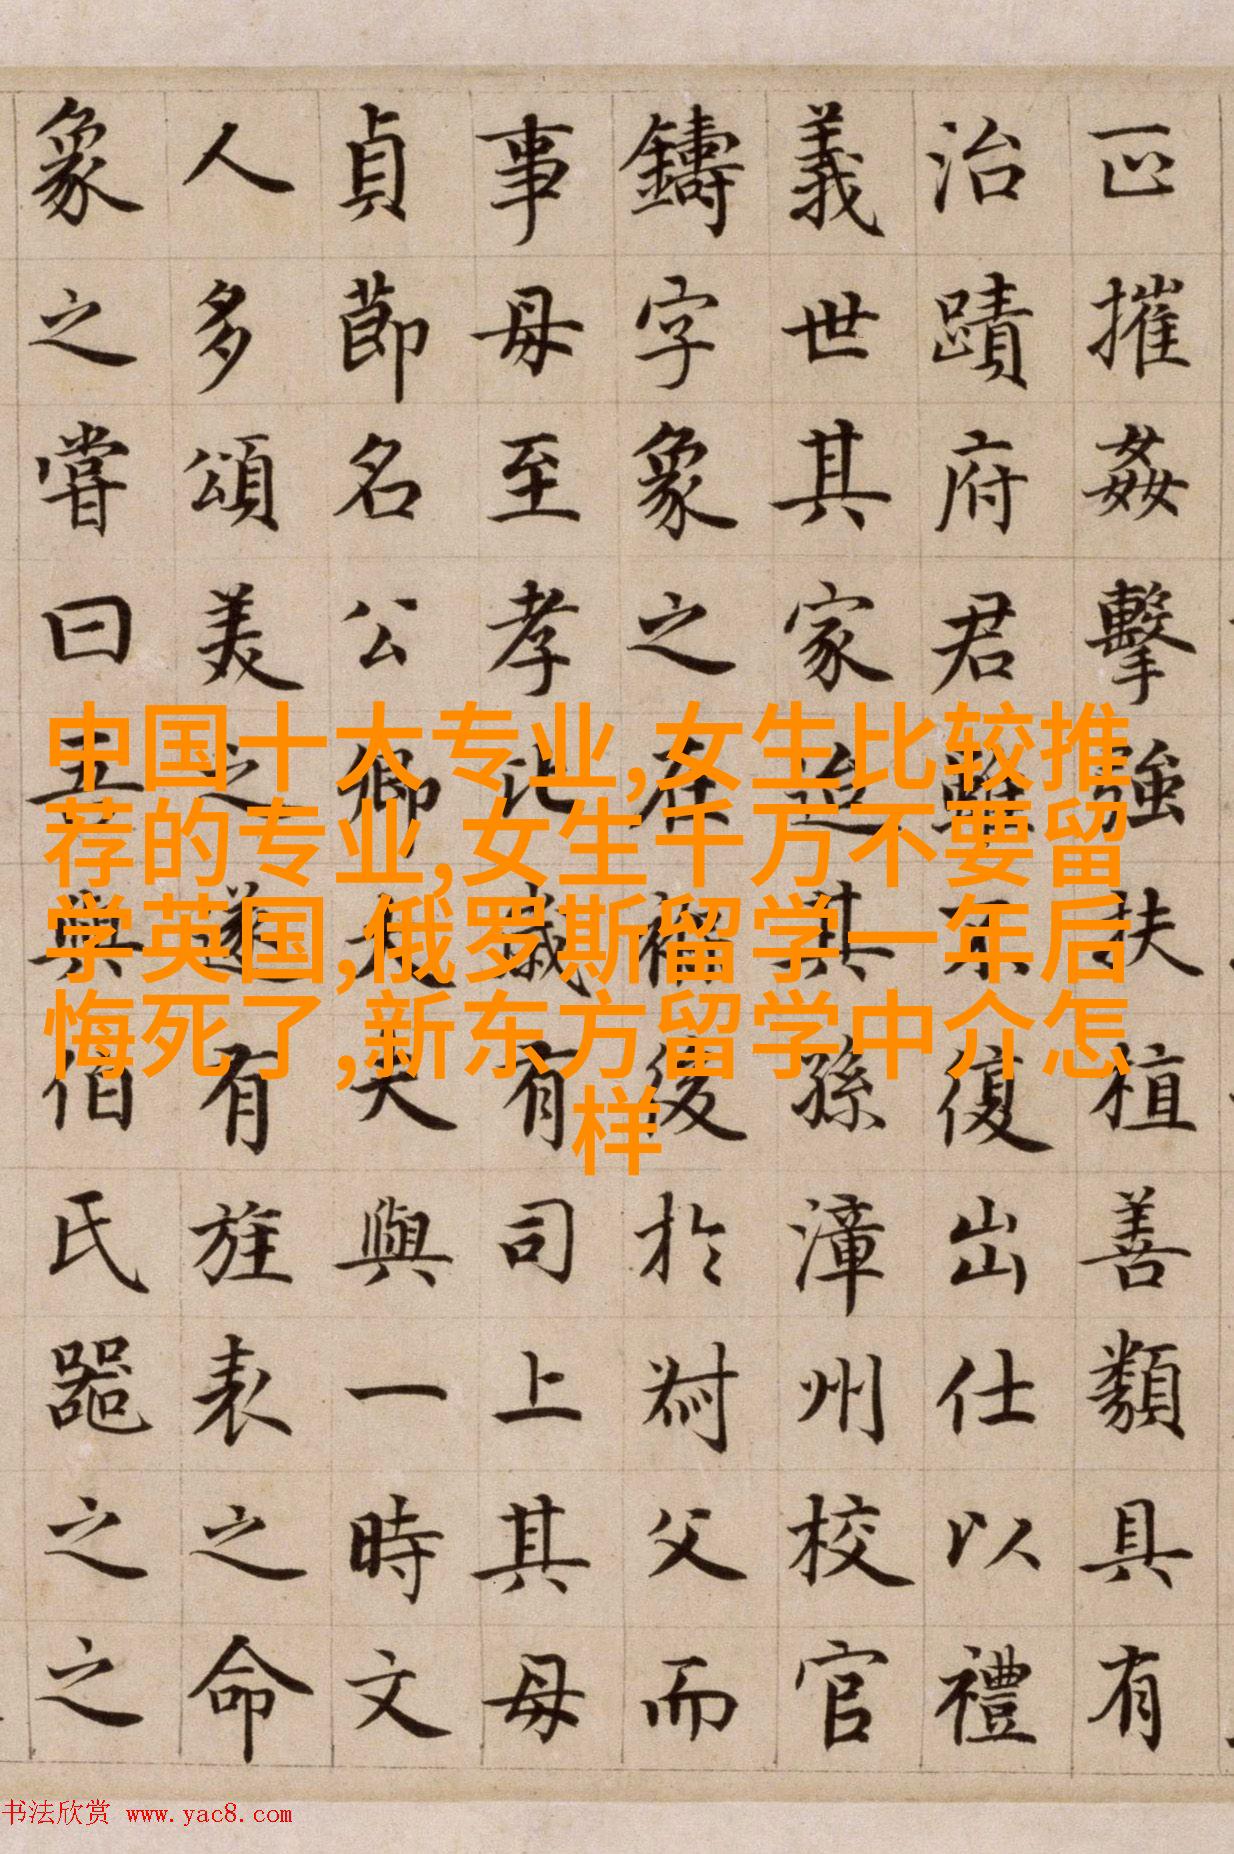 正摧姦擊強扶植善類具有
治蹟府君雖不復出仕以禮
義世其家迨其孫漳州校官
鑄字象之在後於父而
事母至孝比歲有司上其母
貞節名公卿大夫與一時文
人多頌美之遂有旌表之命
象之嘗曰吾與伯氏器之之
中国十大专业,女生比较推
荐的专业,女生千万不要留
学英国,俄罗斯留学一年后
悔死了,新东方留学中介怎
样
书法欣赏 www.yac8.com